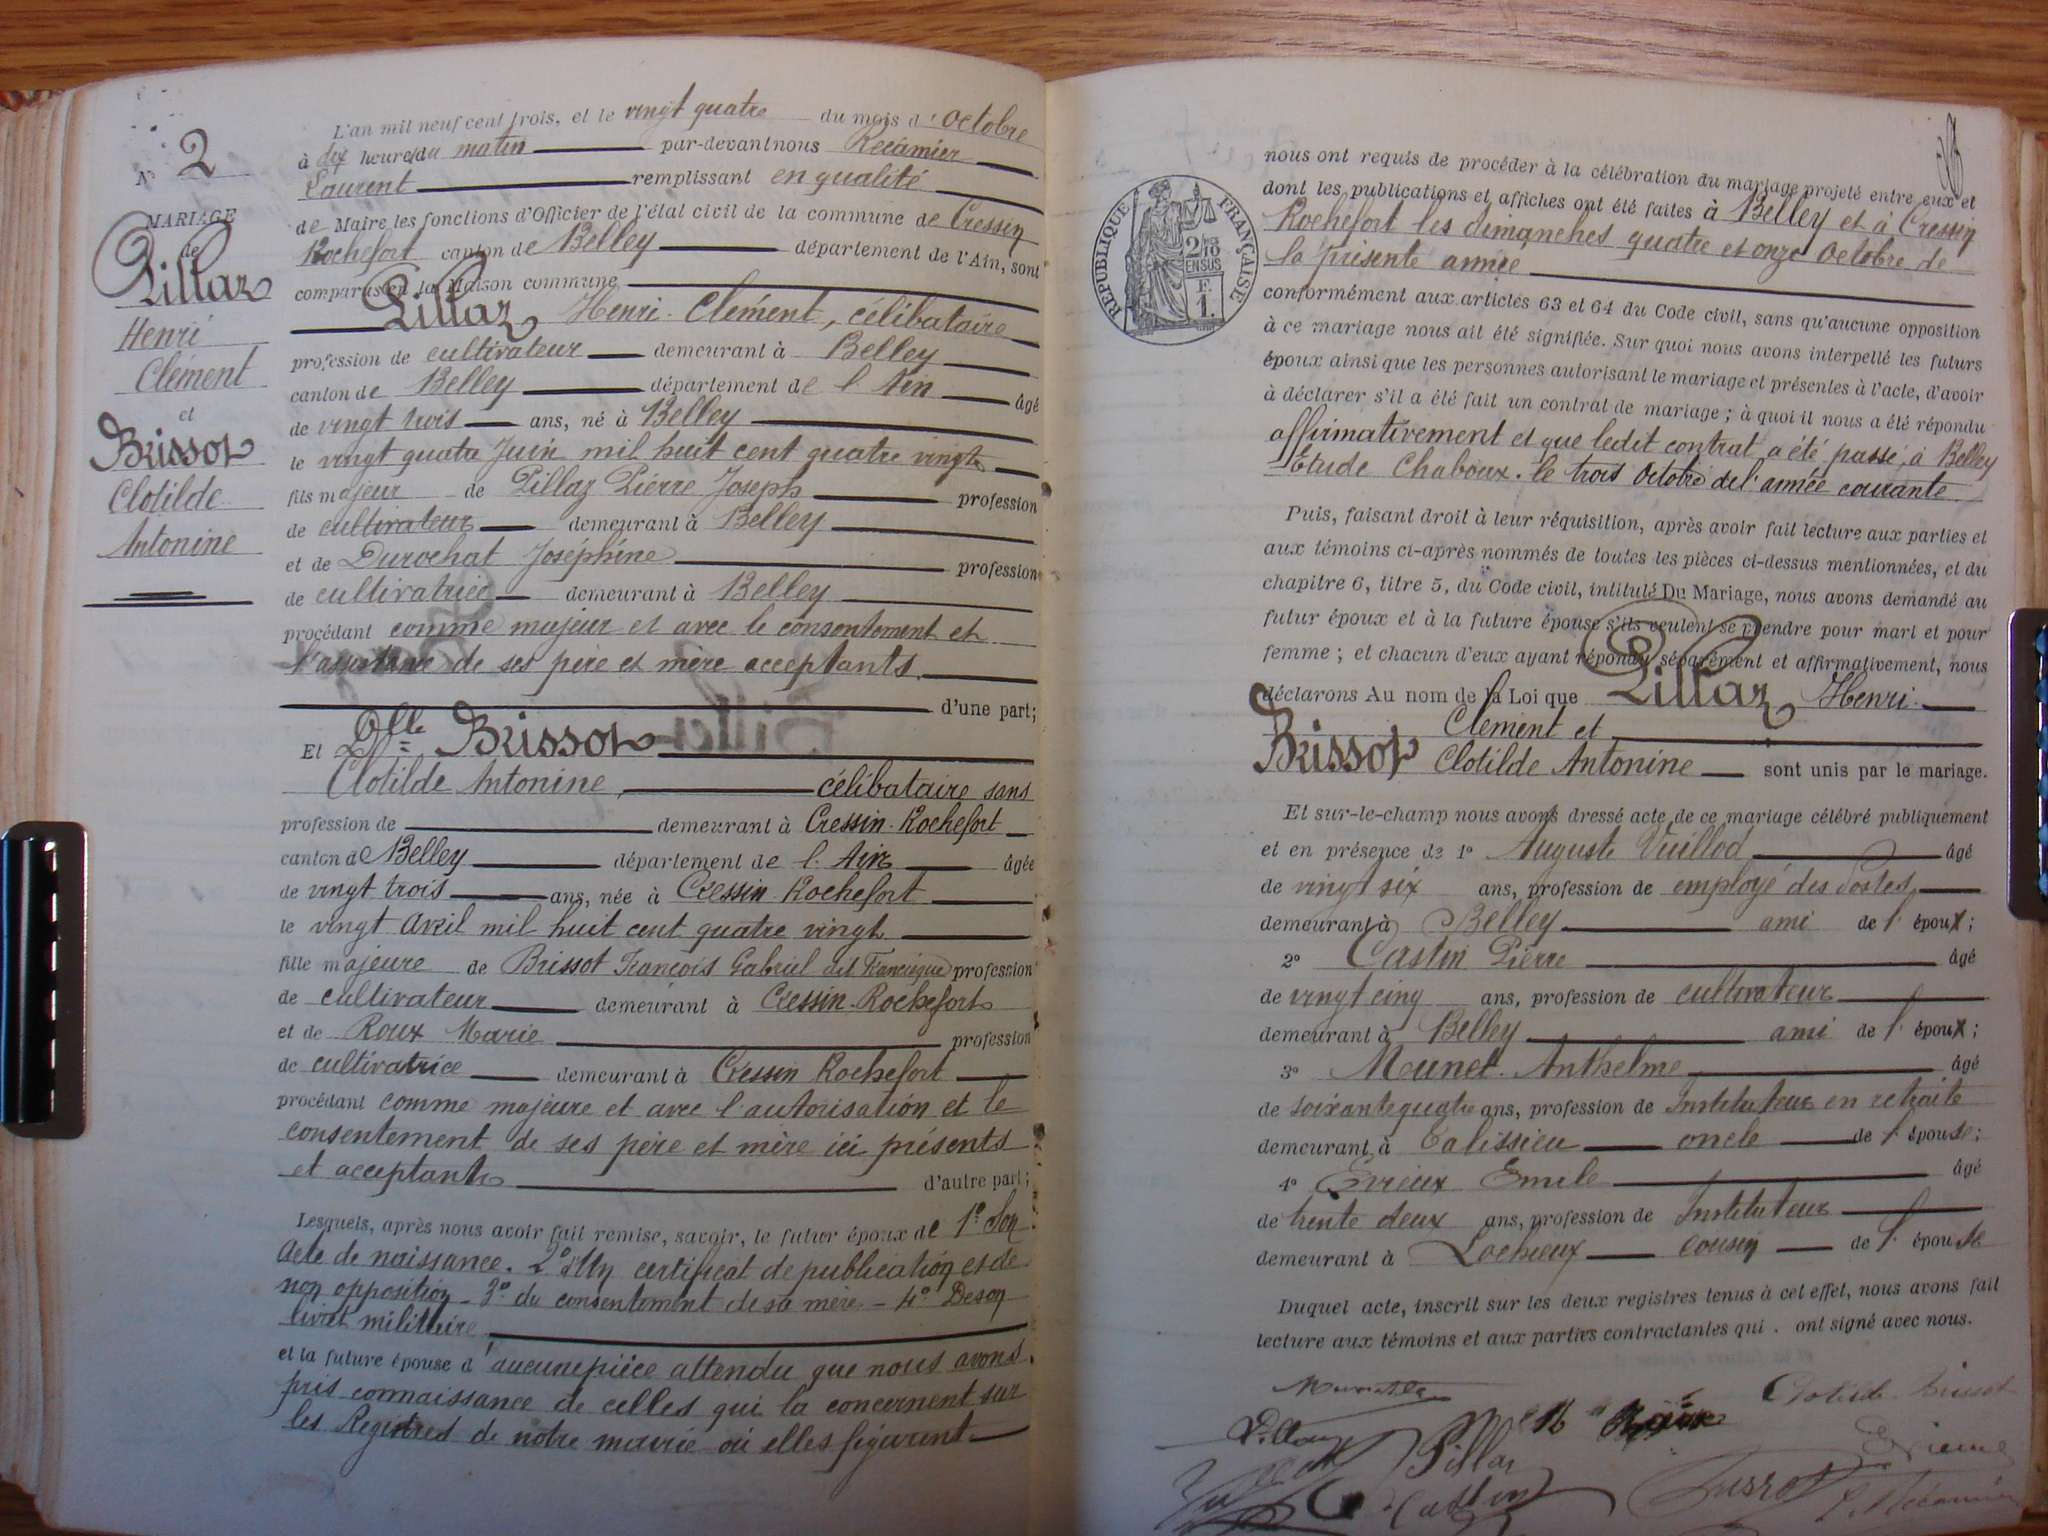 N° 2
MARIAGE
de
Pillaz
Henri
Clément
et
Brissot
Clotilde
Antonine
L'an mil neuf cent trois, et le vingt quatre du mois d'Octobre
à dix heures du matin par-devant nous Récamier
Laurent remplissant en qualité
de Maire les fonctions d'Officier de l'état civil de la commune de Cressin
Rochefort canton de Belley département de l'Ain, sont
comparus en la Maison commune
Pillaz Henri Clément, célibataire
profession de cultivateur demeurant à Belley
canton de Belley département de l'Ain âgé
de vingt trois ans, né à Belley
le vingt quatre Juin mil huit cent quatre vingts
fils majeur de Pillaz Pierre Joseph profession
de cultivateur demeurant à Belley
et de Durochat Joséphine profession
de cultivatrice demeurant à Belley
procédant comme majeur et avec le consentement et
l'assistance de ses père et mère acceptants.
d'une part;
Et Dlle Brissot
Clotilde Antonine, célibataire sans
profession de demeurant à Cressin-Rochefort
canton de Belley département de l'Ain âgée
de vingt trois ans, née à Cressin-Rochefort
le vingt Avril mil huit cent quatre vingt
fille majeure de Brissot François Gabriel dit Francisque profession
de cultivateur demeurant à Cressin-Rochefort
et de Roux Marie profession
de cultivatrice demeurant à Cressin Rochefort
procédant comme majeure et avec l'autorisation et le
consentement de ses père et mère ici présents
et acceptants d'autre part;
Lesquels, après nous avoir fait remise, savoir, le futur époux de 1° Son
Acte de naissance. 2° d'Un certificat de publication et de
non opposition - 3° du consentement de sa mère - 4° De son
livret militaire
et la future épouse d'aucune pièce attendu que nous avons
pris connaissance de celles qui la concernent sur
les Registres de notre mairie où elles figurent
RÉPUBLIQUE FRANÇAISE
2/10 EN SUS
F. 1.
nous ont requis de procéder à la célébration du mariage projeté entre eux et
dont les publications et affiches ont été faites à Belley et à Cressin
Rochefort les dimanches quatre et onze Octobre de
la présente année
conformément aux articles 63 et 64 du Code civil, sans qu'aucune opposition
à ce mariage nous ait été signifiée. Sur quoi nous avons interpellé les futurs
époux ainsi que les personnes autorisant le mariage et présentes à l'acte, d'avoir
à déclarer s'il a été fait un contrat de mariage; à quoi il nous a été répondu
affirmativement et que ledit contrat a été passé, à Belley
Etude Chaboux. le trois Octobre de l'année courante
Puis, faisant droit à leur réquisition, après avoir fait lecture aux parties et
aux témoins ci-après nommés de toutes les pièces ci-dessus mentionnées, et du
chapitre 6, titre 5, du Code civil, intitulé Du Mariage, nous avons demandé au
futur époux et à la future épouse s'ils veulent se prendre pour mari et pour
femme; et chacun d'eux ayant répondu séparément et affirmativement, nous
déclarons Au nom de la Loi que Pillaz Henri
Clément et
Brissot Clotilde Antonine sont unis par le mariage.
Et sur-le-champ nous avons dressé acte de ce mariage célébré publiquement
et en présence de 1° Auguste Vuillod âgé
de vingt six ans, profession de employé des Postes
demeurant à Belley ami de l'époux;
2° Castin Pierre âgé
de vingt cinq ans, profession de cultivateur
demeurant à Belley ami de l'époux;
3° Munet Anthelme âgé
de soixante quatre ans, profession de Instituteur en retraite
demeurant à Talissieu oncle de l'épouse;
4° Evieux Emile âgé
de trente deux ans, profession de Instituteur
demeurant à Lochieux cousin de l'épouse
Duquel acte, inscrit sur les deux registres tenus à cet effet, nous avons fait
lecture aux témoins et aux parties contractantes qui . ont signé avec nous.
Clotilde Brissot
Pillaz
Pillaz
Castin
Brissot